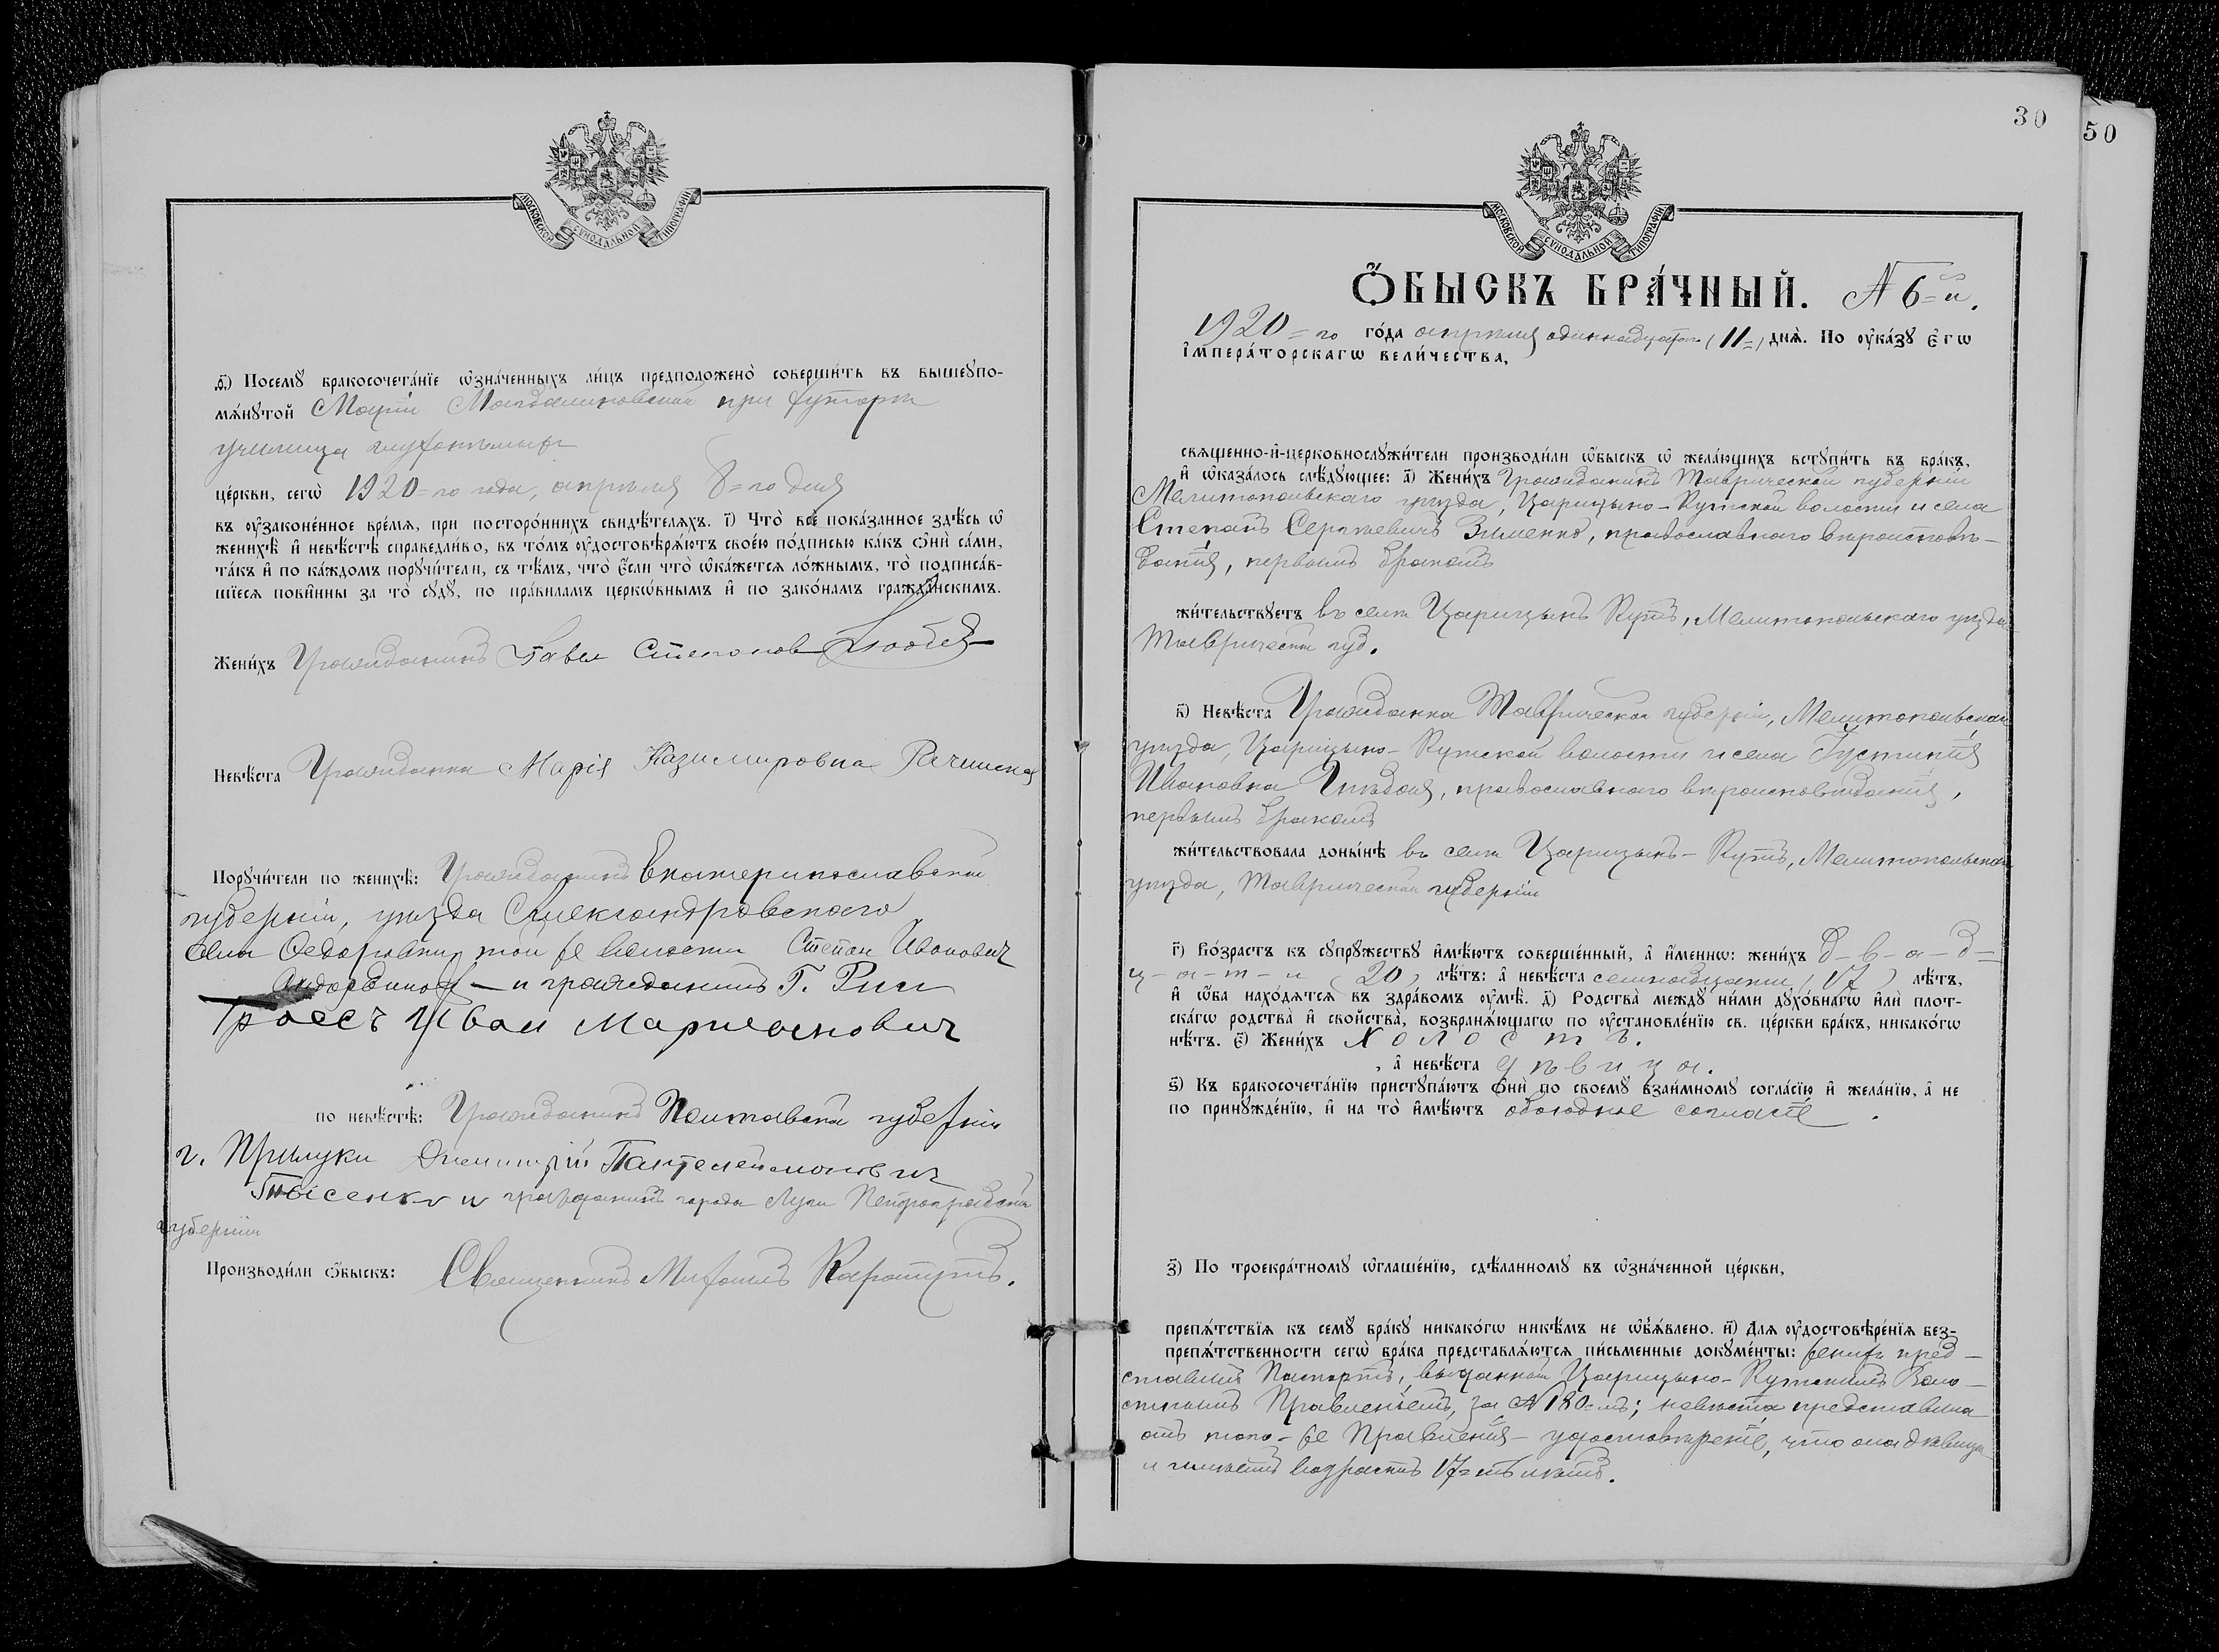 МОСКОВСКОЙ СѴНОДАЛЬНОЙ ТИПОГРАФІИ
ѳ҃) Посемꙋ̀ бракосочета́нїе ѡ҆зна́ченныхъ ли́цъ предположено̀ соверши́ть въ вышеꙋпо-
мѧ́нꙋтой Магдалиновской при хуторѣ
училища глухонѣмыхъ
це́ркви, сегѡ̀ 1920=го года, апрѣля 8=го дня
въ ᲂу҆законе́нное вре́мѧ, при посторо́ннихъ свидѣ́телѧхъ. і҃) Что̀ всѐ пока́занное здѣ́сь ѡ҆
женихѣ̀ и҆ невѣ́стѣ справедли́во, въ то́мъ ᲂу҆достовѣрѧ́ютъ свое́ю по́дписью ка́къ ѻ҆нѝ са́ми,
та́къ и҆ по ка́ждомъ порꙋчи́тели, съ тѣ́мъ, что̀ є҆́сли что̀ ѡ҆ка́жетсѧ ло́жнымъ, то̀ подписа́в-
шїесѧ пови́нны за то̀ сꙋдꙋ̀, по пра́виламъ церкѡ́внымъ и҆ по зако́намъ гражда́нскимъ.
Жени́хъ Гражданинъ Павел Степанов
Невѣ́ста Гражданка Марія Казимировна Рачинская
Порꙋчи́тели по женихѣ̀: Гражданинъ Екатеринославской
губерніи, уѣзда Александровскаго
села Федоровки, той же волости Степан Иванович
и гражданинъ Г. Риги
Гроссъ Иван Марцианович
по невѣ́стѣ: Гражданинъ Полтавской губерніи
г. Прилуки Димитрій Пантелеймонович
Тысенко и гражданинъ города Луги Петроградской
губерніи
Производи́ли ѻ҆́быскъ: Священникъ
30
50
МОСКОВСКОЙ СѴНОДАЛЬНОЙ ТИПОГРАФІИ
Ѻ҆́БЫСКЪ БРА́ЧНЫЙ. № 6=й.
1920=го го́да апрѣля одиннадцатаго (11=) днѧ̀. По ᲂу҆ка́зꙋ є҆гѡ̀
і҆мпера́торскагѡ вели́чества,
свѧщенно-и҆-церковнослꙋжи́тели производи́ли ѻ҆́быскъ ѡ҆ жела́ющихъ встꙋпи́ть въ бра́къ,
и҆ ѡ҆каза́лось слѣ́дꙋющее: а҃) Жени́хъ Гражданинъ Таврической губерніи
Мелитопольскаго уѣзда, Царицыно-Кутской волости и села
Степанъ Сергѣевичъ Зименко, православнаго вѣроисповѣ-
данія, первымъ бракомъ
жи́тельствꙋетъ въ селѣ Царицынъ Кутъ, Мелитопольскаго уѣзда
Таврической губ.
в҃) Невѣ́ста Гражданка Таврической губерніи, Мелитопольскаго
уѣзда, Царицыно-Кутской волости и села Іустинія
Ивановна Гнѣдая, православнаго вѣроисповѣданія,
первымъ бракомъ
жи́тельствовала доны́нѣ въ селѣ Царицынъ-Кутъ, Мелитопольскаго
уѣзда, Таврической губерніи
г҃) Во́зрастъ къ сꙋпрꙋ́жествꙋ и҆мѣ́ютъ соверше́нный, а҆ и҆́меннѡ: жени́хъ д-в-а-д=
ц-а-т-и (20) лѣ́тъ: а҆ невѣ́ста семнадцати (17) лѣ́тъ,
и҆ ѻ҆́ба нахо́дѧтсѧ въ здра́вомъ ᲂу҆мѣ̀. д҃) Родства̀ междꙋ̀ ни́ми дꙋхо́внагѡ и҆лѝ плот-
ска́гѡ родства̀ и҆ сво́йства̀, возбранѧ́ющагѡ по ᲂу҆становле́нїю св. це́ркви бра́къ, никако́гѡ
нѣ́тъ. є҃) Жени́хъ х о л о с т ъ.
, а҆ невѣ́ста д ѣ в и ц а.
ѕ҃) Къ бракосочета́нїю пристꙋпа́ютъ ѻ҆нѝ по своемꙋ̀ взаи́мномꙋ согла́сїю и҆ жела́нїю, а҆ не
по принꙋжде́нїю, и҆ на то̀ и҆мѣ́ютъ обоюдное согласіе.
з҃) По троекра́тномꙋ ѡ҆глаше́нїю, сдѣ́ланномꙋ въ ѡ҆зна́ченной це́ркви,
препѧ́тствїѧ къ семꙋ̀ бра́кꙋ никако́гѡ никѣ́мъ не ѡ҆б̾ѧ́влено. и҃) Длѧ ᲂу҆достовѣре́нїѧ без-
препѧ́тственности сегѡ̀ бра́ка представлѧ́ютсѧ пи́сьменные докꙋме́нты: женихъ пред-
ставилъ Паспортъ, выданный Царицыно-Кутскимъ Воло-
стнымъ Правленіемъ, за № 180=мъ; невѣста представила
отъ того-же Правленія - удостовѣреніе, что она дѣвица
и имѣетъ возрастъ 17=ть лѣтъ.